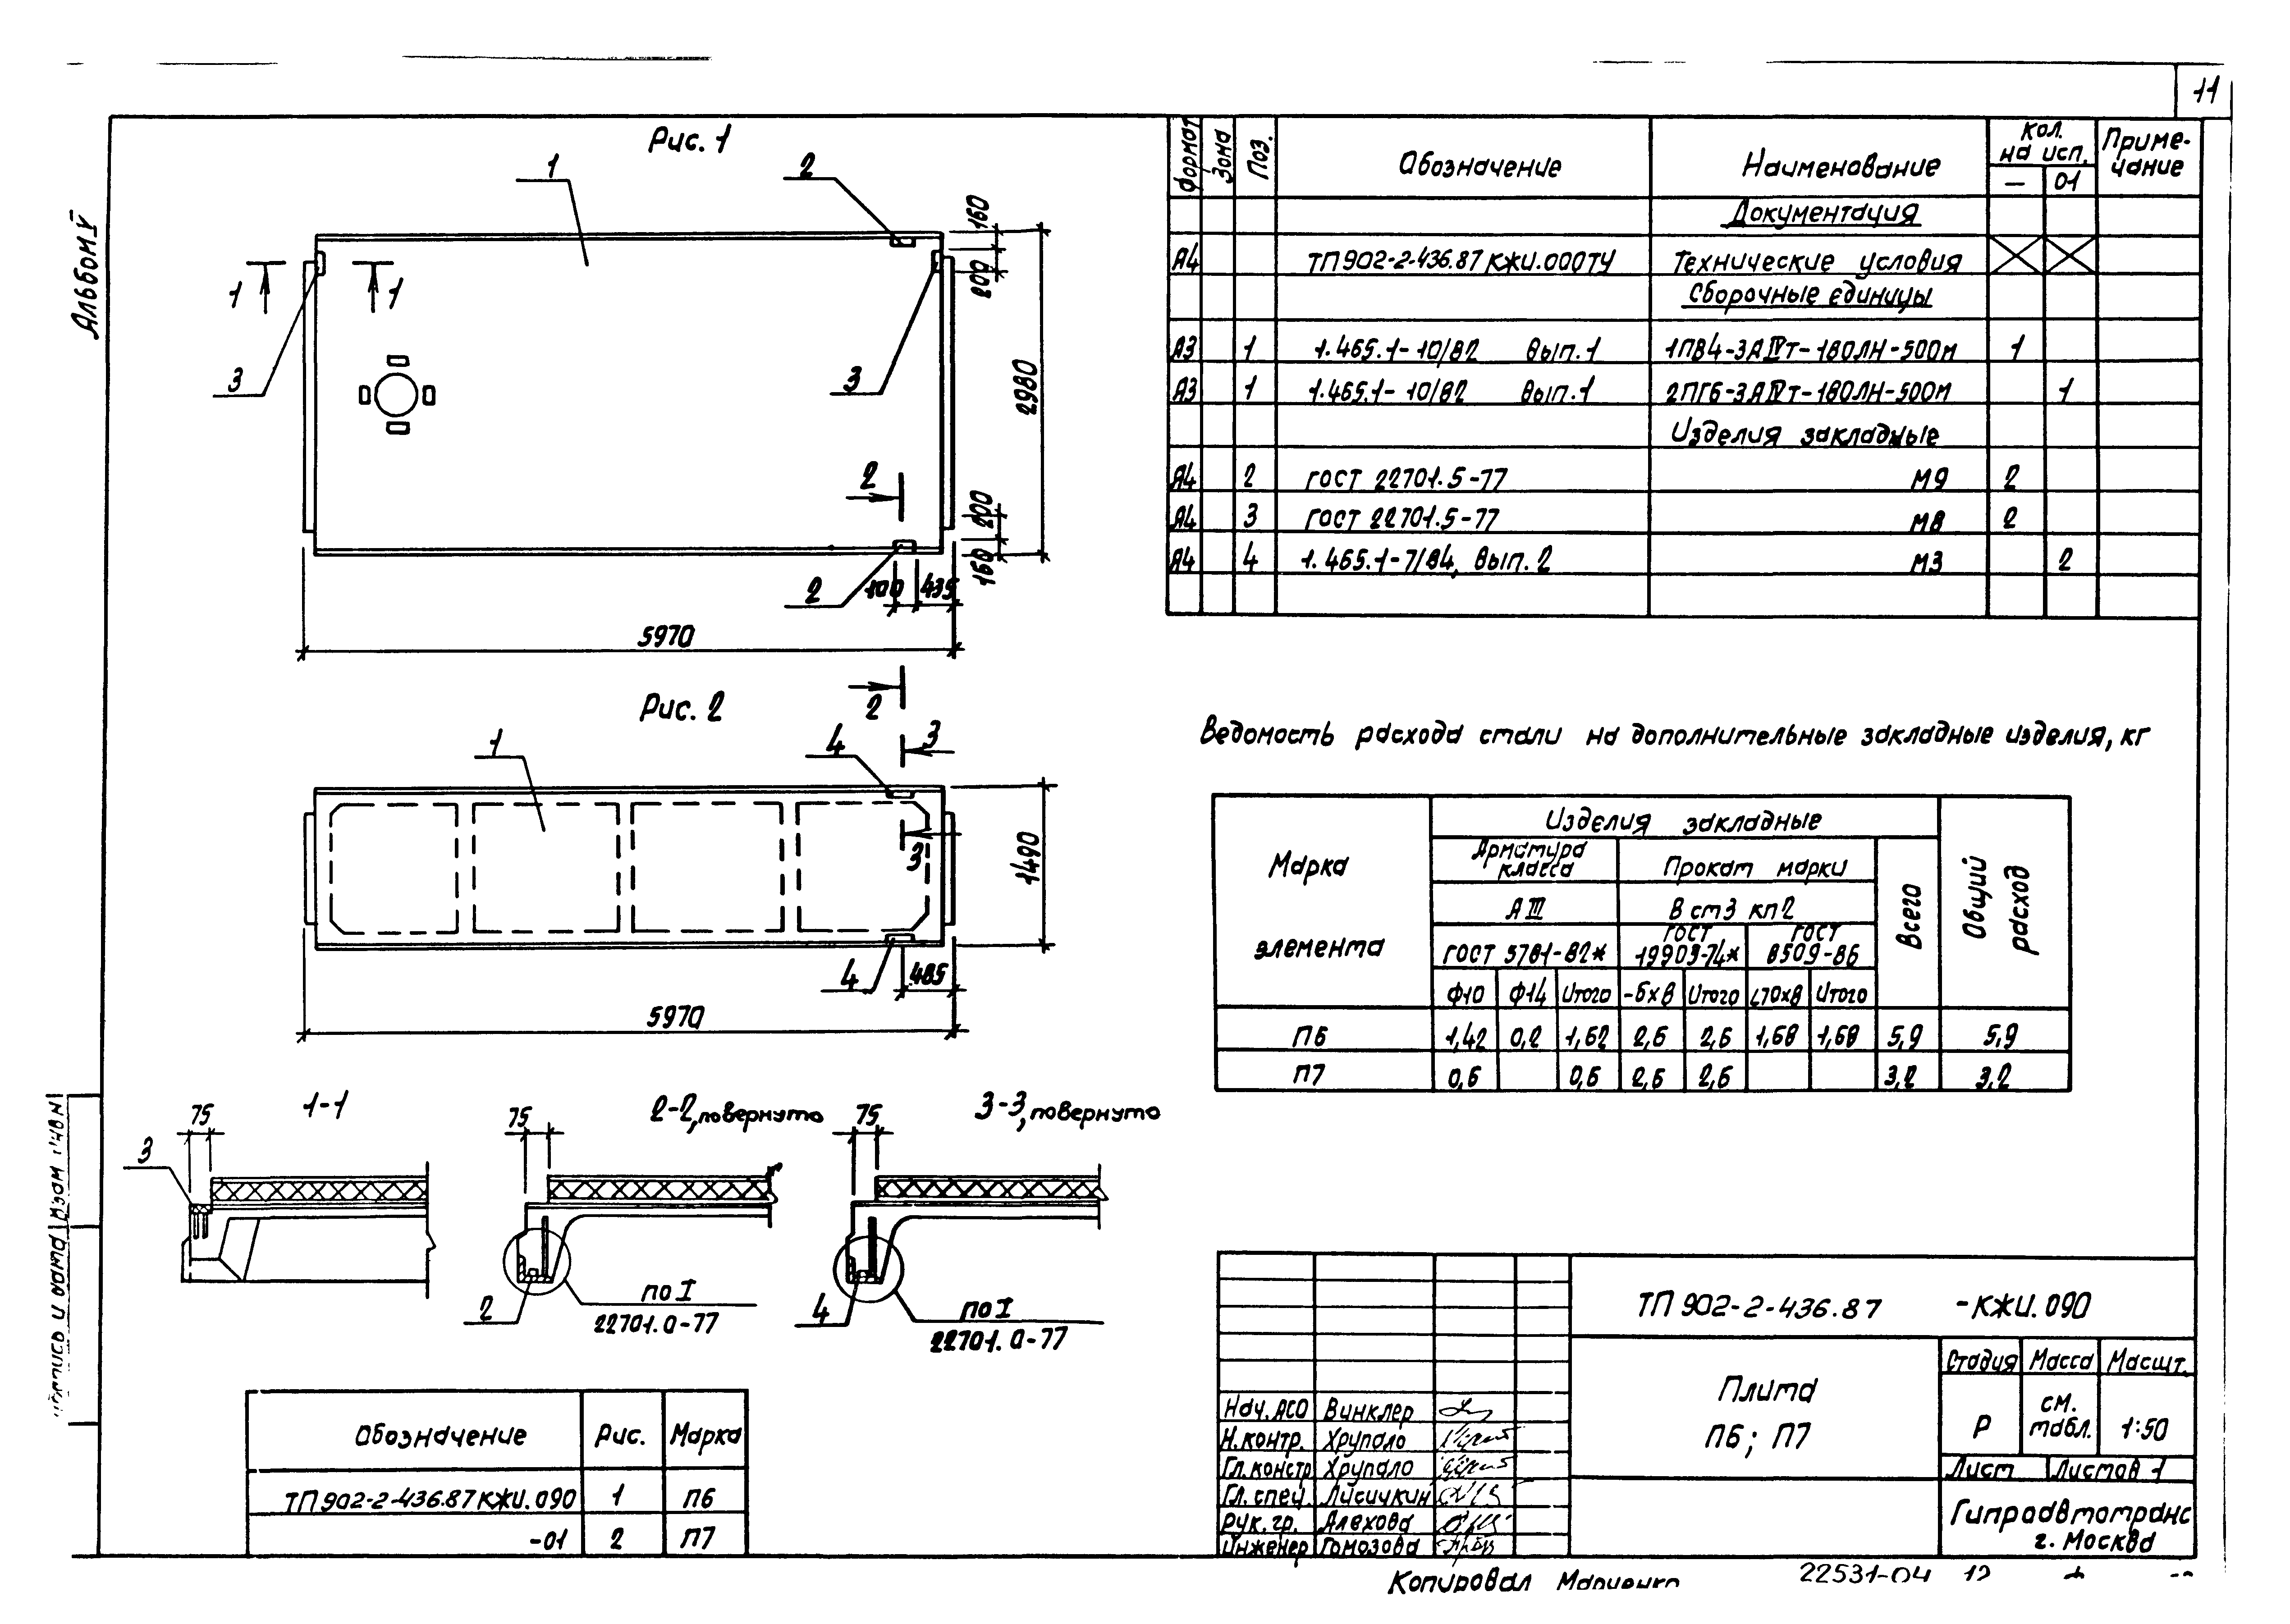 11
Альбом V
Рис. 1
1
2
160
200
1
1
3
3
2980
2
200
160
2
100
435
5970
2
Рис. 2
1
4
3
3
1490
4
485
5970
1-1
75
3
2-2, повернуто
75
2
по I
22701.0-77
3-3, повернуто
75
4
по I
22701.0-77
Обозначение Рис. Марка
ТП 902-2-436.87 КЖИ.090 1 П6
-01 2 П7
Формат Зона Поз. Обозначение Наименование Кол. на исп. Примечание
— 01
Документация
А4 ТП 902-2-436.87 КЖИ.000ТУ Технические условия
Сборочные единицы
А3 1 1.465.1-10/82 Вып.1 1ПВ4-3АIVт-180ЛН-500м 1
А3 1 1.465.1-10/82 Вып.1 2ПГ6-3АIVт-180ЛН-500м 1
Изделия закладные
А4 2 ГОСТ 22701.5-77 М9 2
А4 3 ГОСТ 22701.5-77 М8 2
А4 4 1.465.1-7/84, Вып. 2 М3 2
Ведомость расхода стали на дополнительные закладные изделия, кг
Марка элемента
Изделия закладные
Арматура класса
Прокат марки
Всего
Общий расход
А III
В ст3 кп2
ГОСТ 5781-82*
ГОСТ 19903-74*
ГОСТ 8509-86
Ф10 Ф14 Итого -δх8 Итого L70х8 Итого
П6 1,42 0,2 1,62 2,6 2,6 1,68 1,68 5,9 5,9
П7 0,6 0,6 2,6 2,6 3,2 3,2
ТП 902-2-436.87 -КЖИ.090
Плита
П6; П7
Стадия Масса Масшт.
Р см. табл. 1:50
Лист Листов 1
Гипроавтотранс
г. Москва
Нач. АСО Винклер
Н. контр. Хрупало
Гл. констр Хрупало
Гл. спец. Лисичкин
Рук. гр. Алехова
Инженер Гомозова
Копировал
22531-04 12